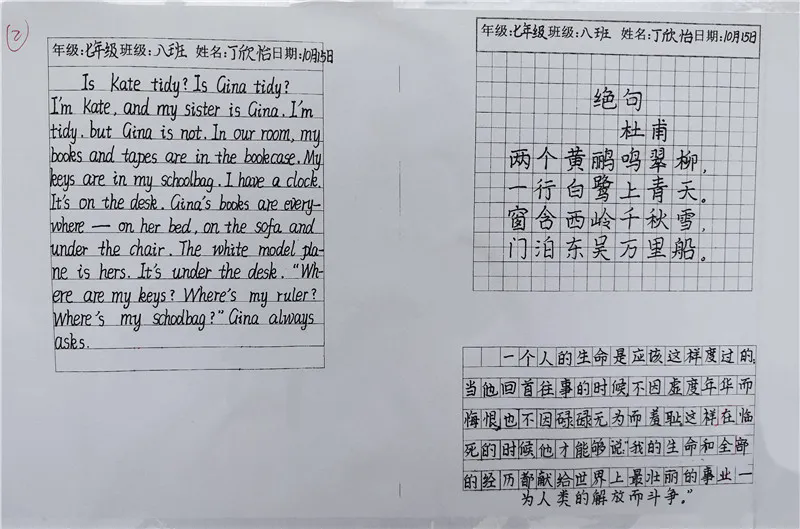 2
年级:七年级班级:八班 姓名:丁欣怡日期:10月15日
Is Kate tidy? Is Gina tidy?
I'm Kate, and my sister is Gina. I'm
tidy. but Gina is not. In our room, my
books and tapes are in the bookcase. My
keys are in my schoolbag. I have a clock.
It's on the desk. Gina's books are every-
where — on her bed, on the sofa and
under the chair. The white model pla-
ne is hers. It's under the desk. "Wh-
ere are my keys? Where's my ruler?
Where's my schoolbag?" Gina always
asks.
年级:七年级班级:八班 姓名:丁欣怡日期:10月15日
绝句
杜甫
两个黄鹂鸣翠柳,
一行白鹭上青天。
窗含西岭千秋雪,
门泊东吴万里船。
一个人的生命是应该这样度过的,
当他回首往事的时候,不因虚度年华而
悔恨,也不因碌碌无为而羞耻,这样在临
死的时候他才能够说:"我的生命和全部
的经历都献给世界上最壮丽的事业一
为人类的解放而斗争。"